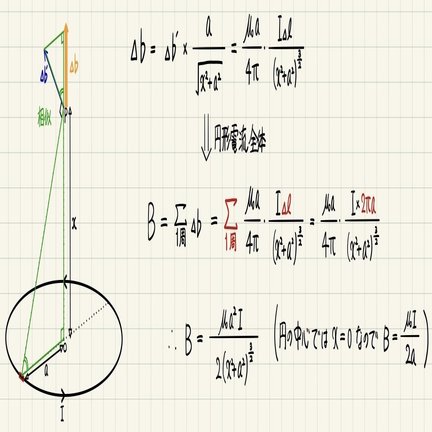 Δb = Δb' × a/√(x²+a²) = μ₀a/4π · IΔl/(x²+a²)^(3/2)
Δb'
Δb
相似
⇓ 円形電流全体
x
B = Σ_{1周} Δb = Σ_{1周} μ₀a/4π · IΔl/(x²+a²)^(3/2) = μ₀a/4π · I×2πa/(x²+a²)^(3/2)
∴ B = μ₀a²I/2(x²+a²)^(3/2) (円の中心では x=0 なので B = μI/2a)
a
I